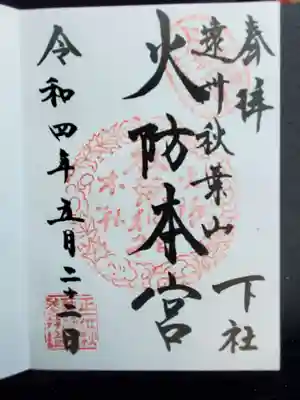 奉拝
遠州秋葉山
下社
火防本宮
令和四年五月二十二日